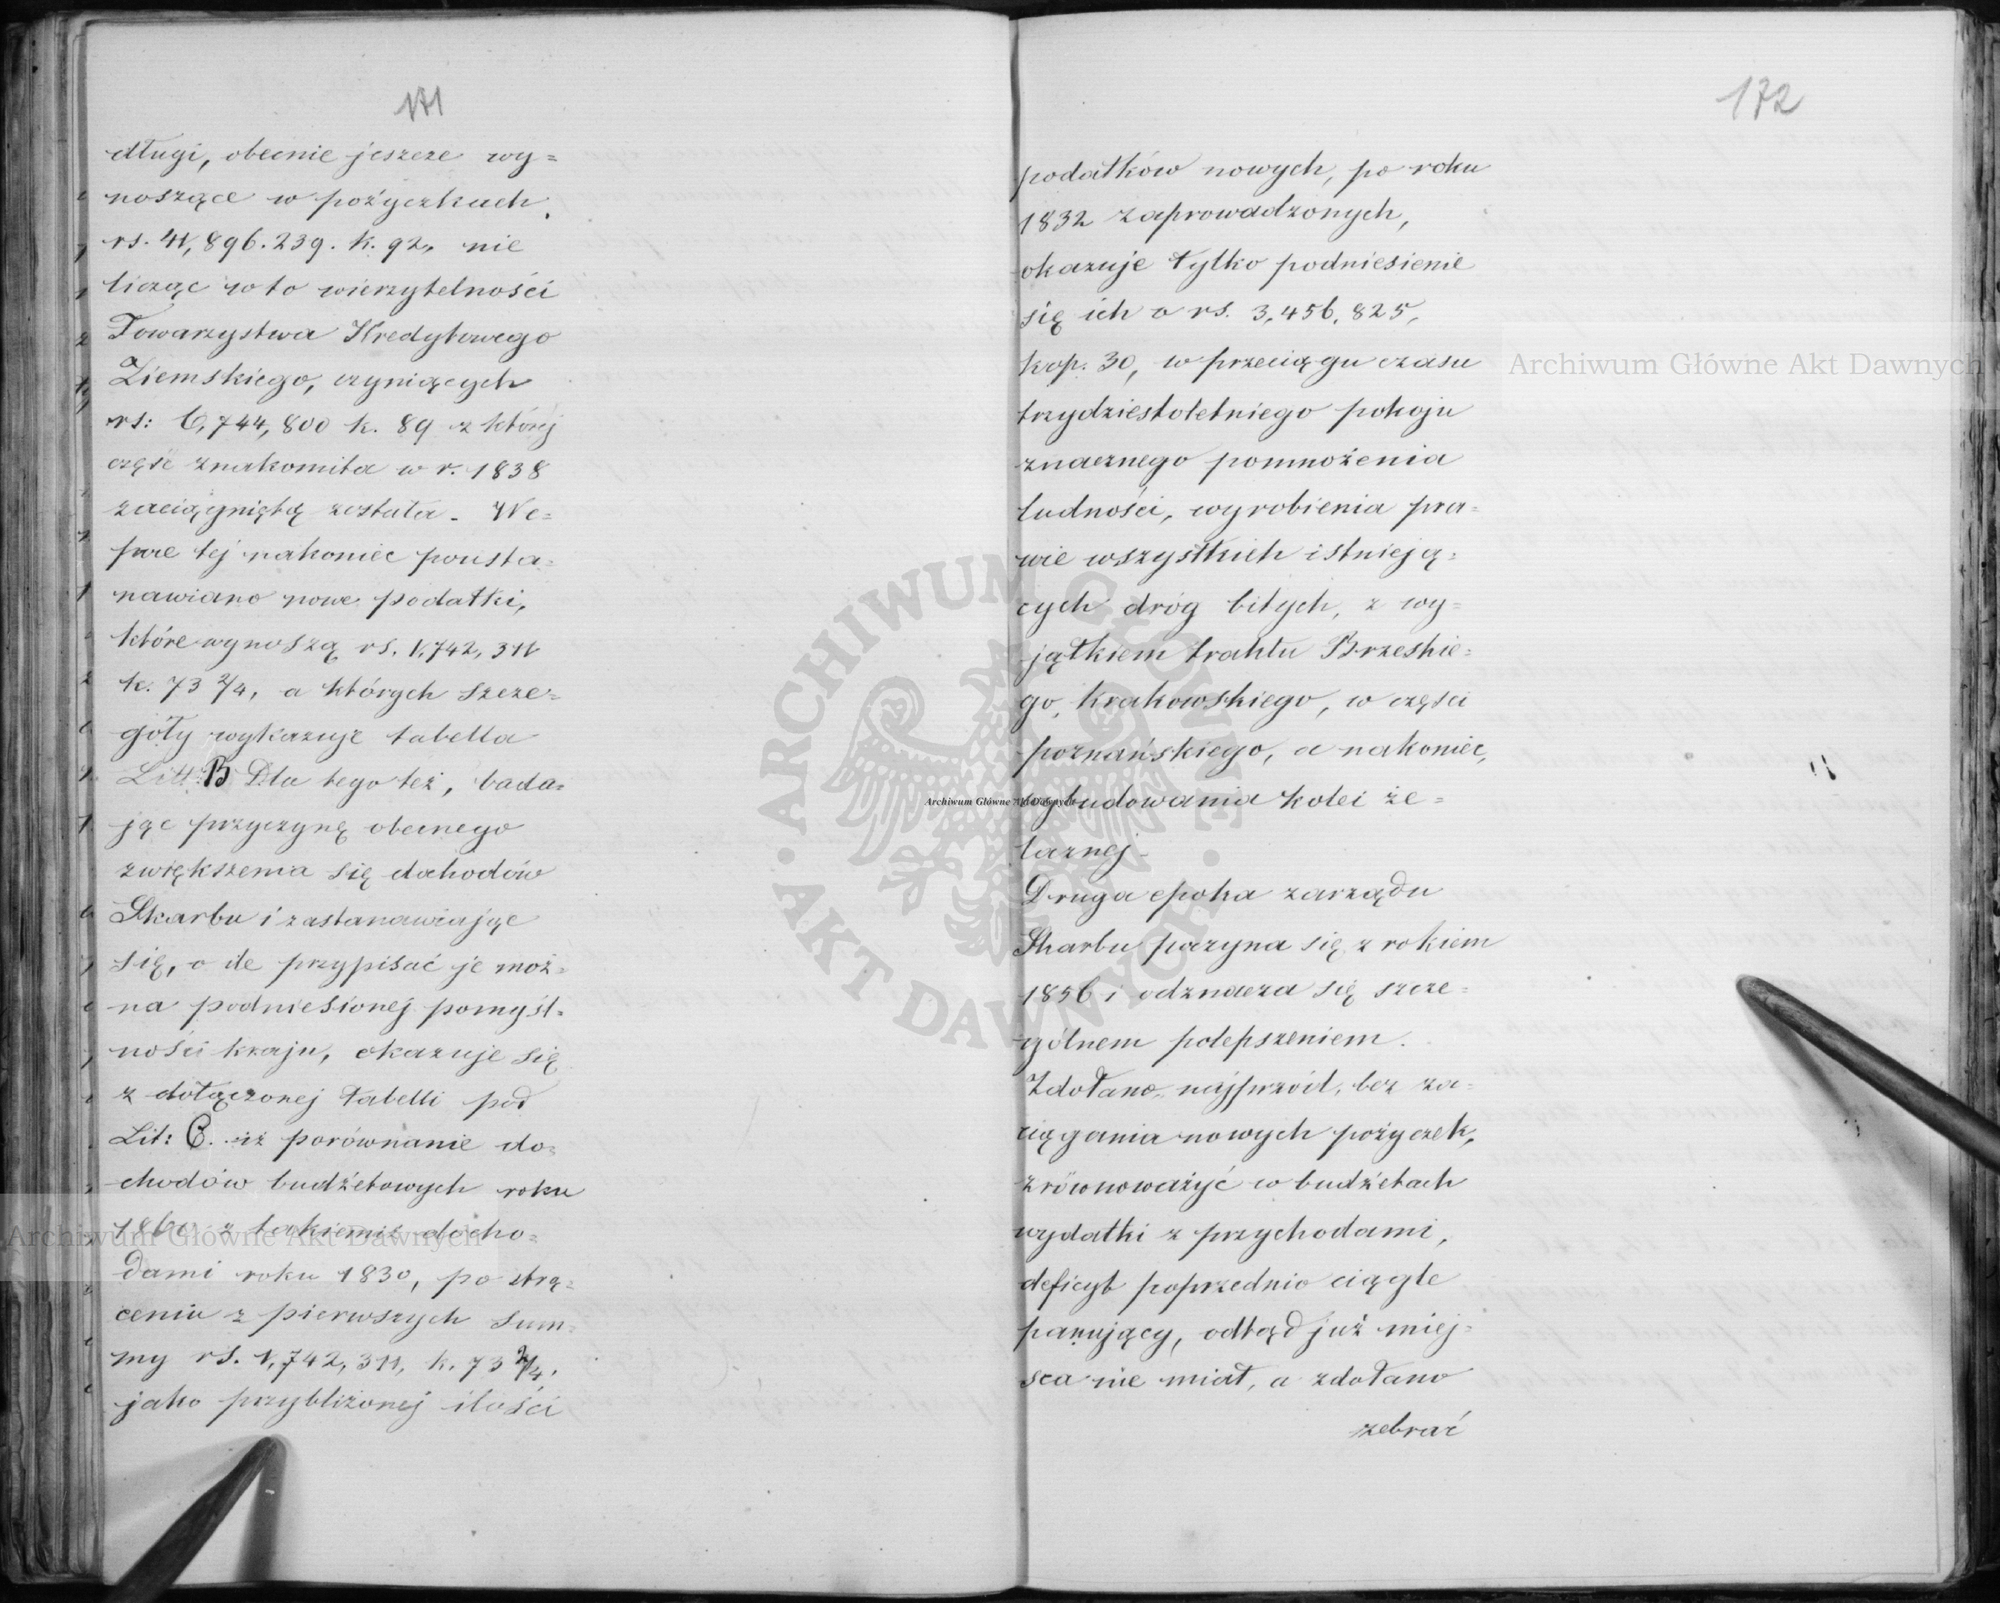 171
długi, obecnie jeszcze wy=
noszące w pożyczkach,
rs. 41,896.239. k. 92, nie
licząc w to wierzytelności
Towarzystwa Kredytowego
Ziemskiego, czyniących
rs: 6,744,800 k. 89 z której
część znakomita w r. 1838
zaciągniętą została. W e=
poce tej nakoniec pousta=
nawiano nowe podatki,
które wynoszą rs. 1,742,311
k. 73 2/4, a których szcze=
góły wykazuje tabella
Litt: B Dla tego też, bada=
jąc przyczynę obecnego
zwiększenia się dochodów
Skarbu i zastanawiając
się, o ile przypisać je moż=
na podniesionej pomyśl=
ności kraju, okazuje się
z dołączonej Tabelli pod
Lit: C. iż porównanie do=
chodów budżetowych roku
1860 z takiemiż docho=
dami roku 1830, po strą=
ceniu z pierwszych sum=
my rs. 1,742,311, k. 73 2/4,
jako przybliżonej ilości
172
podatków nowych, po roku
1832 zaprowadzonych,
okazuje tylko podniesienie
się ich o rs. 3,456,825,
kop. 30, w przeciągu czasu
trzydziestoletniego pokoju
znacznego pomnożenia
ludności, wyrobienia pra=
wie wszystkich istnieją=
cych dróg bitych, z wy=
jątkiem traktu Brzeskie=
go, Krakowskiego, w części
poznańskiego, a nakoniec,
wybudowania kolei że=
laznej.
Druga epoka zarządu
Skarbu poczyna się z rokiem
1856 i odznacza się szcze=
gólnem polepszeniem.
Zdołano, najprzód, bez za=
ciągania nowych pożyczek,
zrównoważyć w budżetach
wydatki z przychodami,
deficyt poprzednio ciągle
panujący, odtąd już miej=
sca nie miał, a zdołano
zebrać
Archiwum Główne Akt Dawnych
Archiwum Główne Akt Dawnych
Archiwum Główne Akt Dawnych
ARCHIWUM GŁÓWNE · AKT DAWNYCH ·